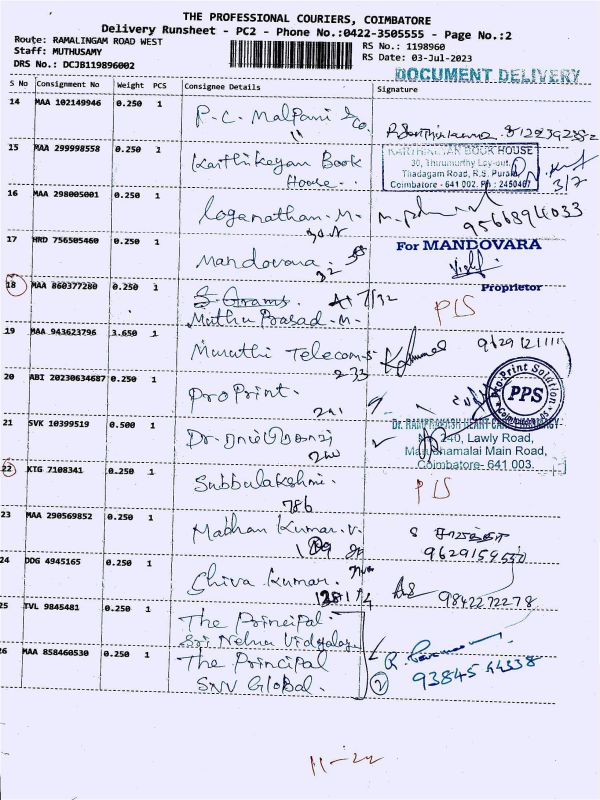 THE PROFESSIONAL COURIERS, COIMBATORE
Delivery Runsheet - PC2 - Phone No.:0422-3505555 - Page No.:2
Route: RAMALINGAM ROAD WEST
Staff: MUTHUSAMY
DRS No.: DCJB119896002
RS No.: 1198960
RS Date: 03-Jul-2023
DOCUMENT DELIVERY
S No Consignment No Weight PCS Consignee Details Signature
14 MAA 102149946 0.250 1 P.C. Malpani & Co.
15 MAA 299998558 0.250 1 Karthikeyan Book House
KARTHIKEYAN BOOK HOUSE
30, Thirumurthy Lay-out,
Thadagam Road, R.S. Puram
Coimbatore - 641 002. Ph : 2450467
3/7
16 MAA 298005001 0.250 1 Loganathan. M.
9566894033
17 HRD 756505460 0.250 1 Mandovara.
32
For MANDOVARA
Proprietor
18 MAA 860377280 0.250 1 S. Grams.
Muthu Prasad. M.
19 MAA 943623796 3.650 1 Maruthi Telecoms
233
20 ABI 20230634687 0.250 1 Pro Print.
Pro-Print Solution
PPS
21 SVK 10399519 0.500 1 Dr.
Dr. RAMPRAKASH HEART CARE
240, Lawly Road,
Maruthamalai Main Road,
Coimbatore- 641 003.
22 KTG 7108341 0.250 1 Subbulakshmi.
786
23 MAA 290569852 0.250 1 Madhan Kumar. V.
9629154550
24 DDG 4945165 0.250 1 Shiva Kumar.
9842272278
25 TVL 9845481 0.250 1 The Principal.
Sri Nehru Vidyalaya
26 MAA 858460530 0.250 1 The Principal
SNV Global.
2
9384544338
11-22